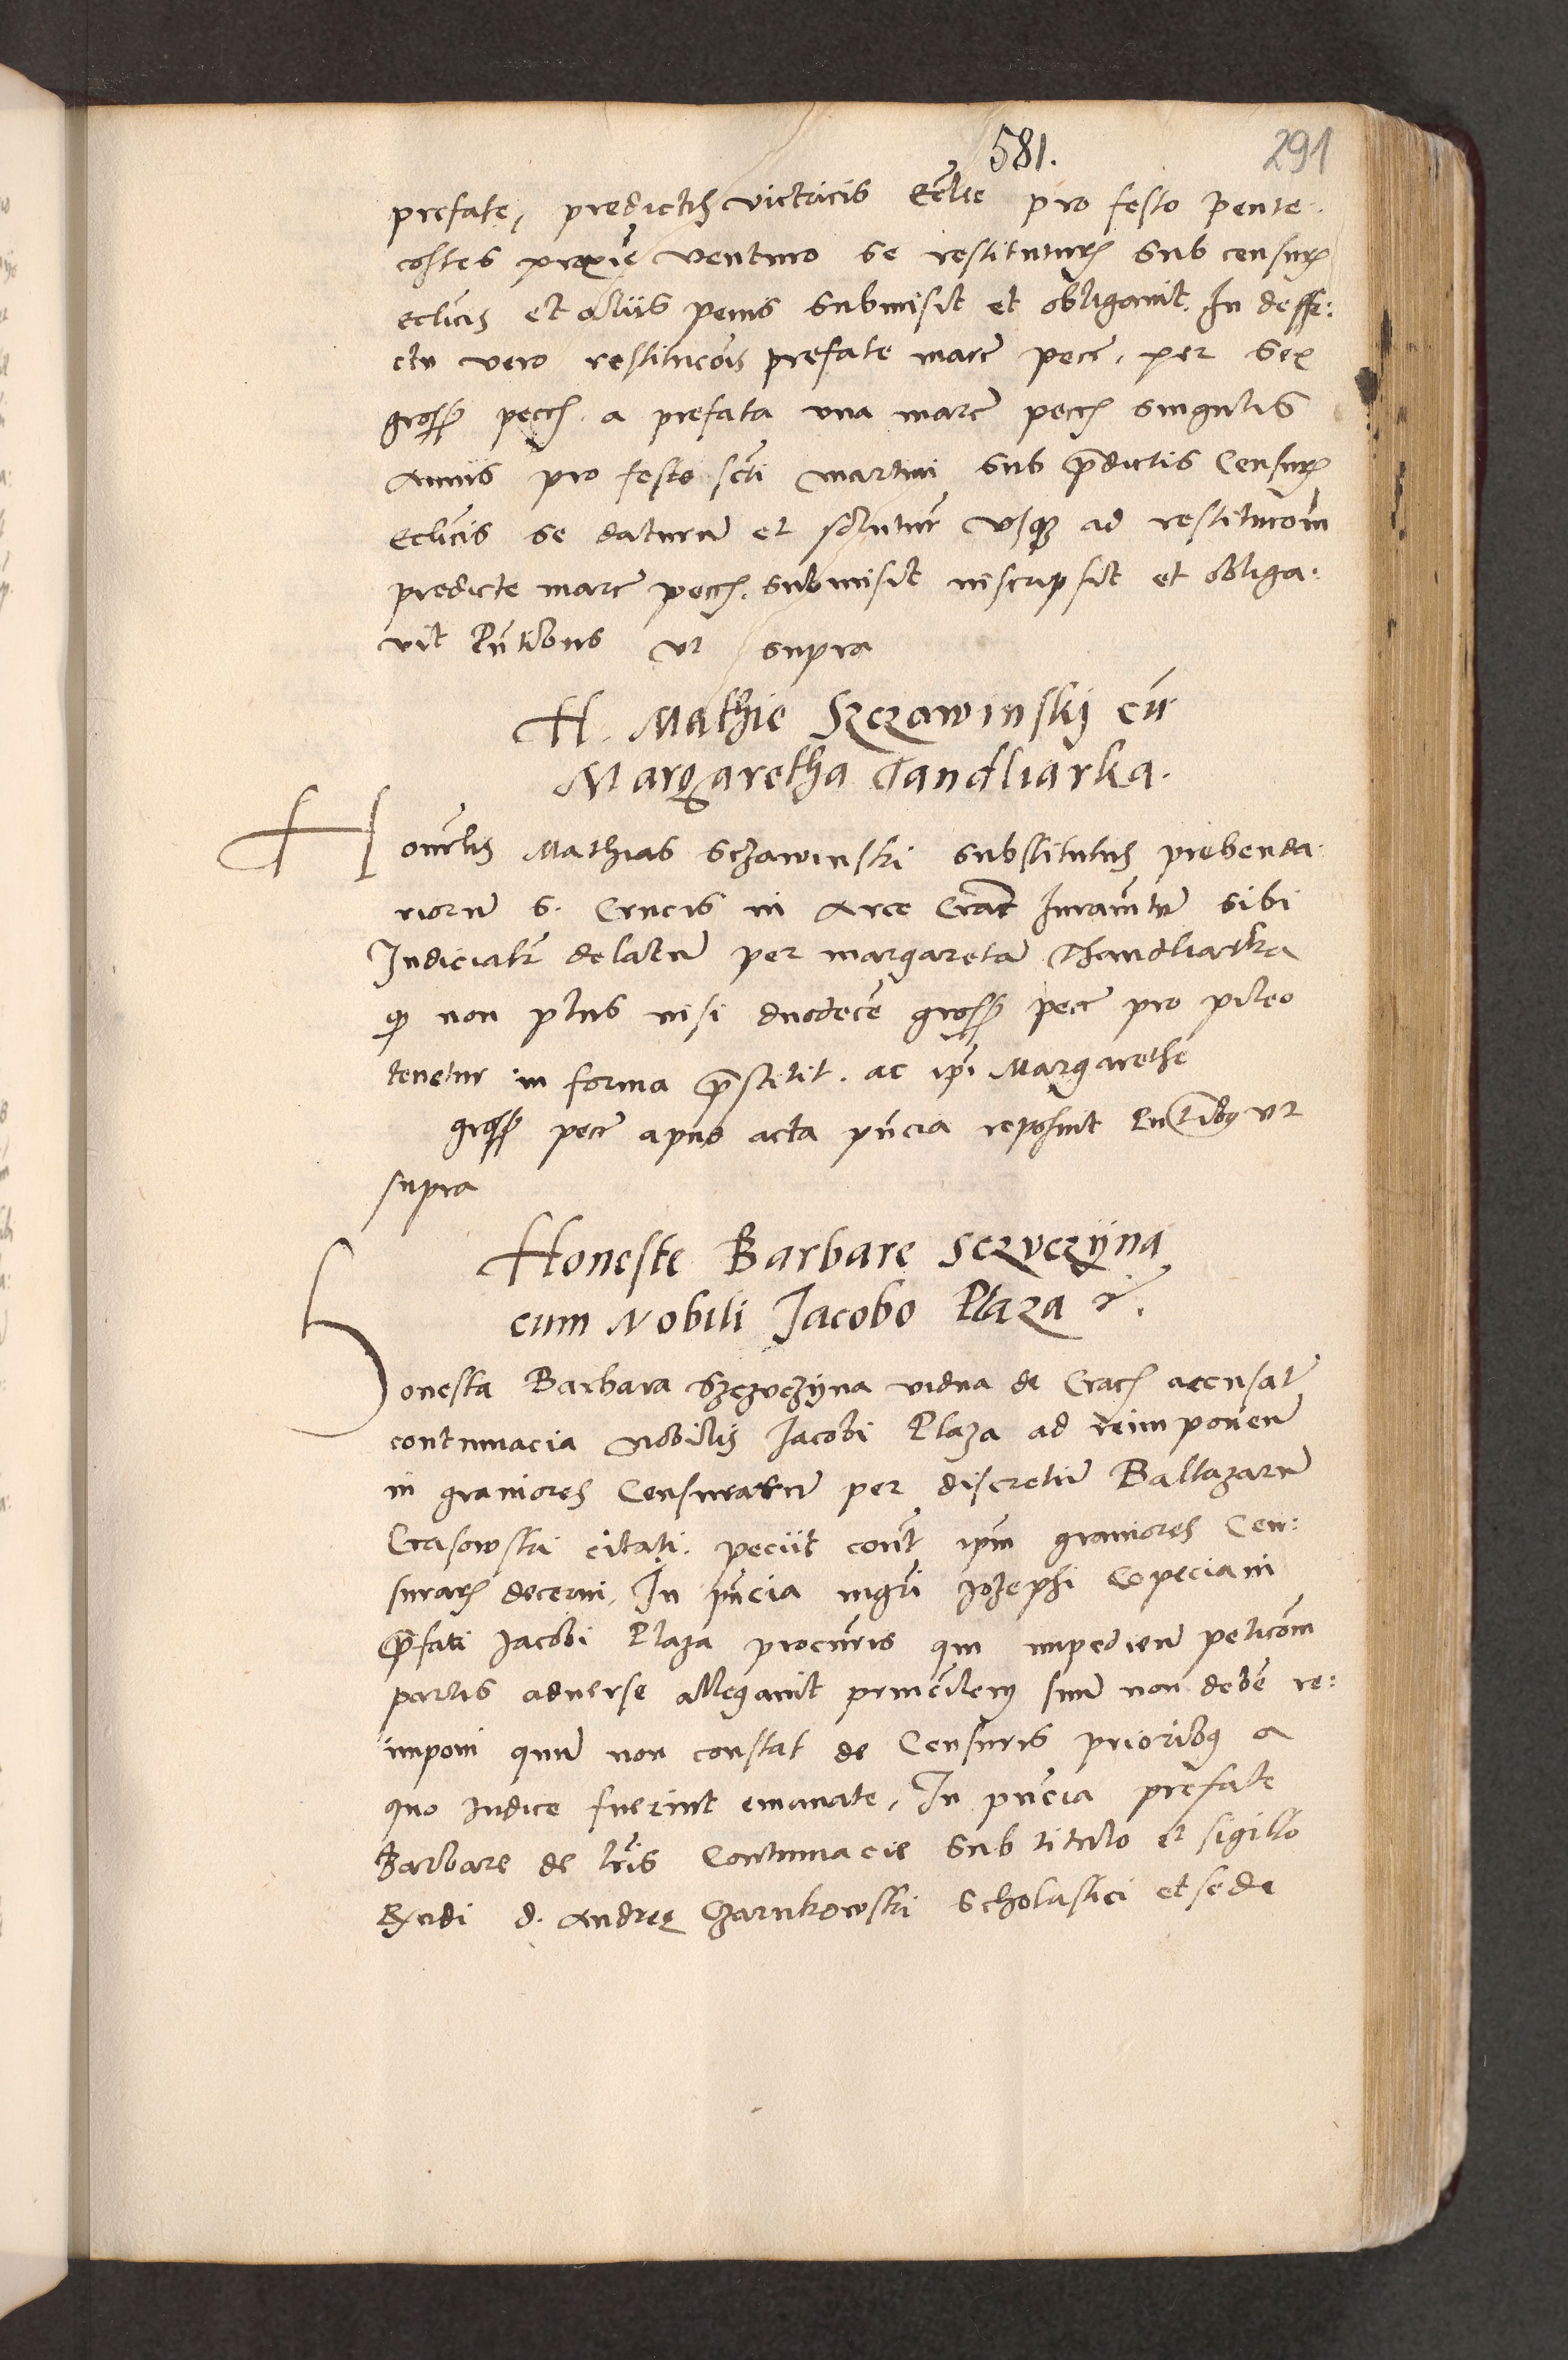 581.
291
prefate, predictis victricis Eccl̃ie pro festo Pente.
costes proxie venturo se restituturȝ sub censurȝ
Eccl̃icis et aliis penis submisit et obligauit. In deffe:
ctu vero restituc̃ois prefate marc̃ pecc̃, per sex
grossȝ pecc̃. a prefata una marc̃ pecc̃ singulis
Annis pro festo sc̃ti Martini sub p̃dictis Censurȝ
Eccl̃icis se daturu̅ et solutur̃ usqȝ ad restituc̃om
predicte marc̃ pecc̃. submisit inscripsit et obliga.
vit Pn̅tibus ut supra
H. Mathie Szczawinskij cu̅
Margaretha Tandliarka.
Honr̃lis Mathias Sczawinski substitutus prebenda.
rioru̅ S. Crucis in Arce Crac̃ Juram̃tu̅ sibi
Judicialr̃ delatu̅ per Margareta̅ Thandliarka
qȝ non plus nisi duodece̅ grossȝ pecc̃ pro pileo
tenetur in forma p̃stitit. ac ip̃i Margarethe
grossȝ pecc̃ apud acta pn̅cia reposuit Pn̅tibȝ ut
supra
Honeste Barbare Sczuczÿna
cum Nobili Jacobo Plaza
Honesta Barbara Szczuczÿna vidua de Cracȝ accusat̃
contumacia Nobilis Jacobi Plaza ad reimponen̅
in grauiores Censuraru̅ per discretu̅ Baltazaru̅
Crasowski citati. peciit cont̃ ip̃m grauiores Cen:
surarȝ decerni, In pn̅cia mgr̃i Jozephi Copeciani
p̃fati Jacobi Plaza procur̃is qui impedien̅ petic̃om
partis aduerse allegauit princ̃ilem suu̅ non debe̅ re:
imponi quu̅ non constat de Censuris prioribȝ a
quo Judice fuerint emanate, In pn̅cia prefate
Barbare de lr̃is Contumacie sub titulo et sigillo
Rn̅di d. Andreę Czarnkowski Scholastici et sede